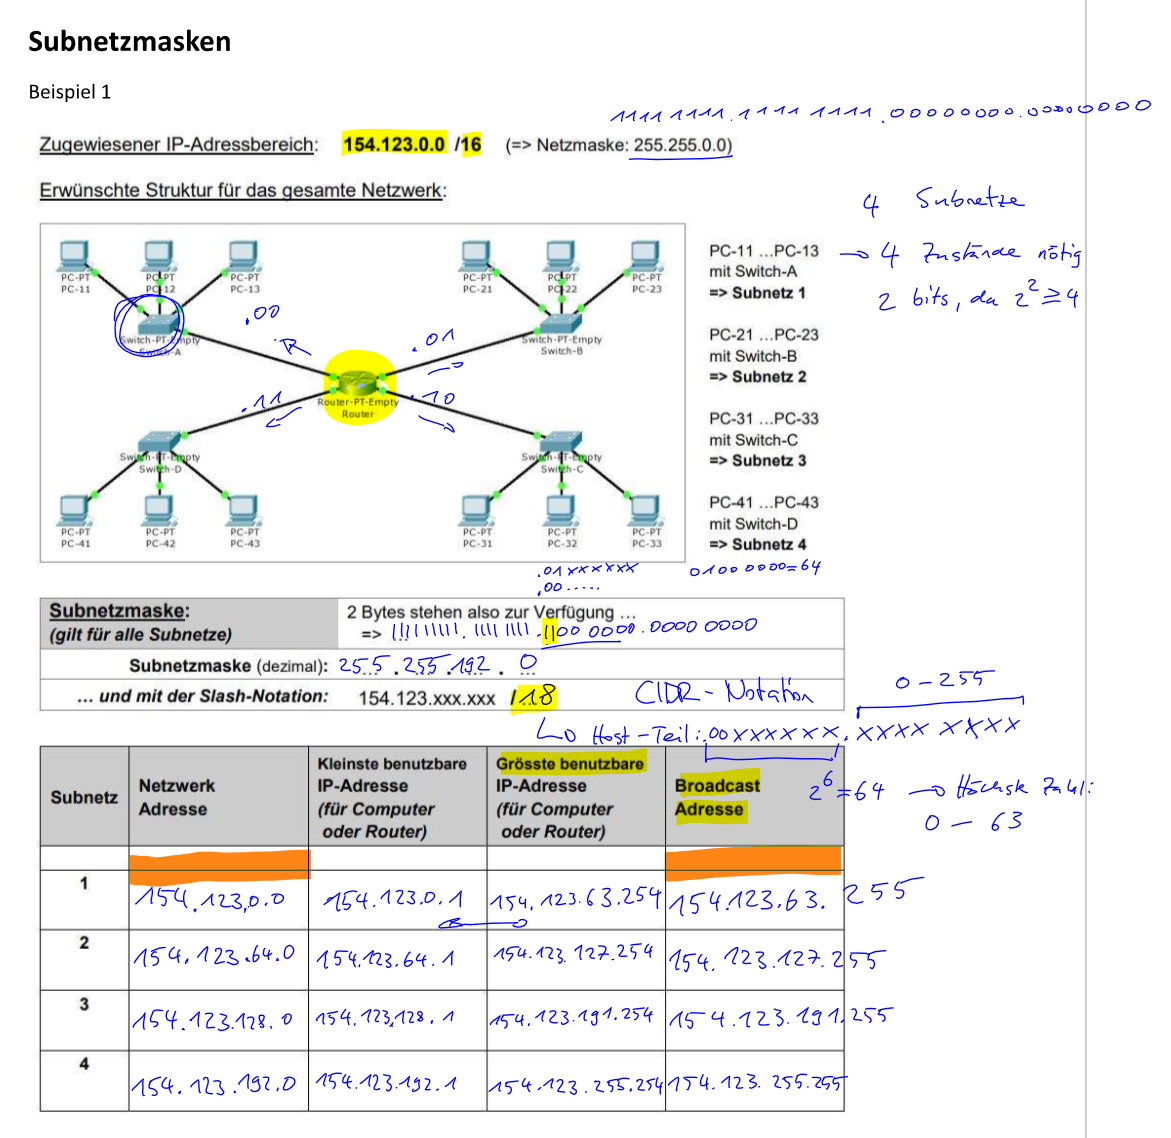 Subnetzmasken
Beispiel 1
1111 1111.1111 1111.00000000.00000000
Zugewiesener IP-Adressbereich: 154.123.0.0 /16 (=> Netzmaske: 255.255.0.0)
Erwünschte Struktur für das gesamte Netzwerk:
4 Subnetze
→ 4 Zustände nötig
2 bits, da 2² ≥ 4
PC-PT
PC-11
PC-PT
PC-12
PC-PT
PC-13
PC-PT
PC-21
PC-PT
PC-22
PC-PT
PC-23
Switch-PT-Empty
Switch-A
Switch-PT-Empty
Switch-B
.00
.01
.11
.10
Router-PT-Empty
Router
Switch-PT-Empty
Switch-D
Switch-PT-Empty
Switch-C
PC-PT
PC-41
PC-PT
PC-42
PC-PT
PC-43
PC-PT
PC-31
PC-PT
PC-32
PC-PT
PC-33
PC-11 ...PC-13
mit Switch-A
=> Subnetz 1
PC-21 ...PC-23
mit Switch-B
=> Subnetz 2
PC-31 ...PC-33
mit Switch-C
=> Subnetz 3
PC-41 ...PC-43
mit Switch-D
=> Subnetz 4
.01xxxxxx 0100 0000=64
.00.....
Subnetzmaske:
(gilt für alle Subnetze)
2 Bytes stehen also zur Verfügung ...
=> 11111111.1111 1111.1100 0000.0000 0000
Subnetzmaske (dezimal): 255.255.192.0
... und mit der Slash-Notation: 154.123.xxx.xxx /18
CIDR-Notation
0-255
Host-Teil: .00xxxxxx.xxxx xxxx
2⁶=64 → Höchste Zahl:
0 – 63
Subnetz
Netzwerk
Adresse
Kleinste benutzbare
IP-Adresse
(für Computer
oder Router)
Grösste benutzbare
IP-Adresse
(für Computer
oder Router)
Broadcast
Adresse
1 154.123.0.0 154.123.0.1 154.123.63.254 154.123.63.255
2 154.123.64.0 154.123.64.1 154.123.127.254 154.123.127.255
3 154.123.128.0 154.123.128.1 154.123.191.254 154.123.191.255
4 154.123.192.0 154.123.192.1 154.123.255.254 154.123.255.255